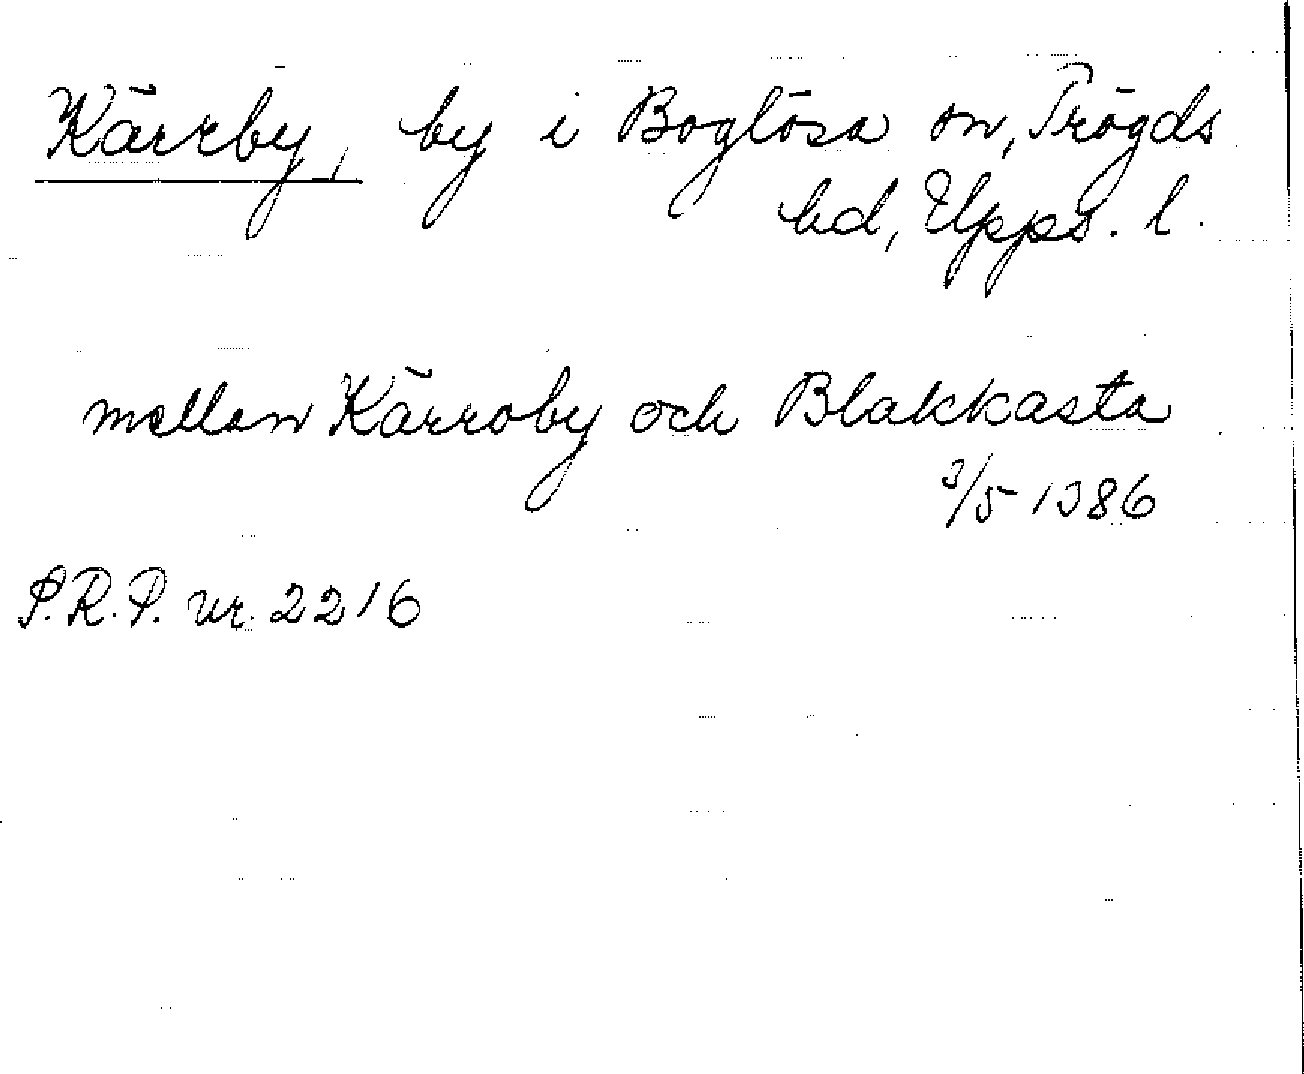 Kärrby, by i Boglösa sn, Trögds
hd, Upps. l.
mellan Kärroby och Blakkasta
3/5 1386
S.R.P. nr. 2216